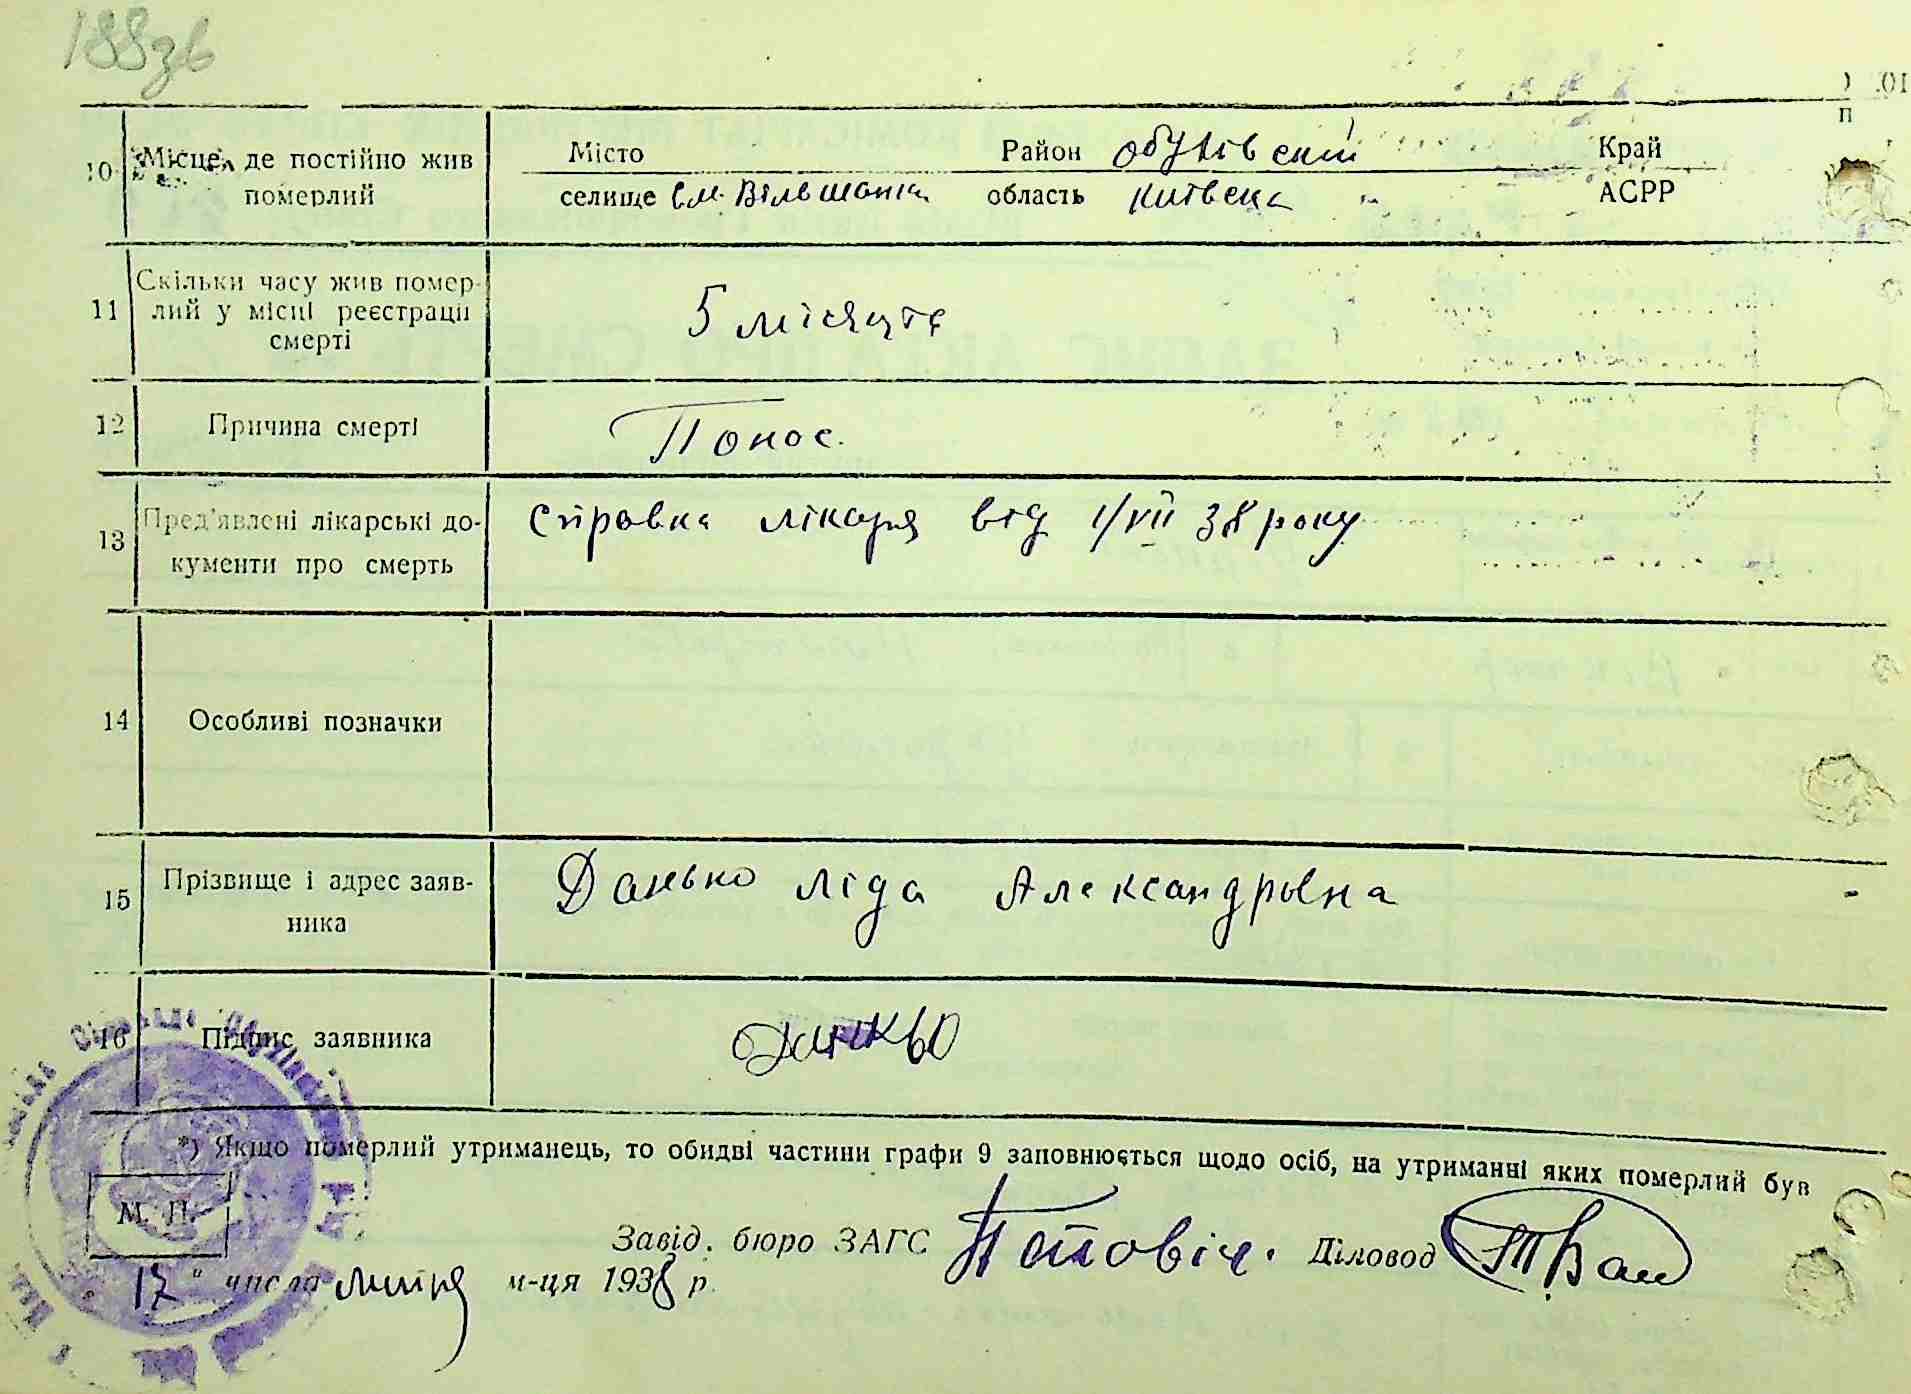 188зв
10 Місце, де постійно жив померлий
Місто Район обухівский Край
селище см. Вільшанка область київска АСРР
11 Скільки часу жив помер-
лий у місці реєстрації
смерті
5 місяців
12 Причина смерті Понос.
13 Пред'явлені лікарські до-
кументи про смерть
справка лікаря від 1/VII 38 року
14 Особливі позначки
15 Прізвище і адрес заяв-
ника
Данько Ліда Александрывна
16 Підпис заявника Данкьо
*) Якщо померлий утриманець, то обидві частини графи 9 заповнюється щодо осіб, на утриманні яких померлий був
М. П.
Завід. бюро ЗАГС Діловод
17 " числа липня м-ця 1938 р.